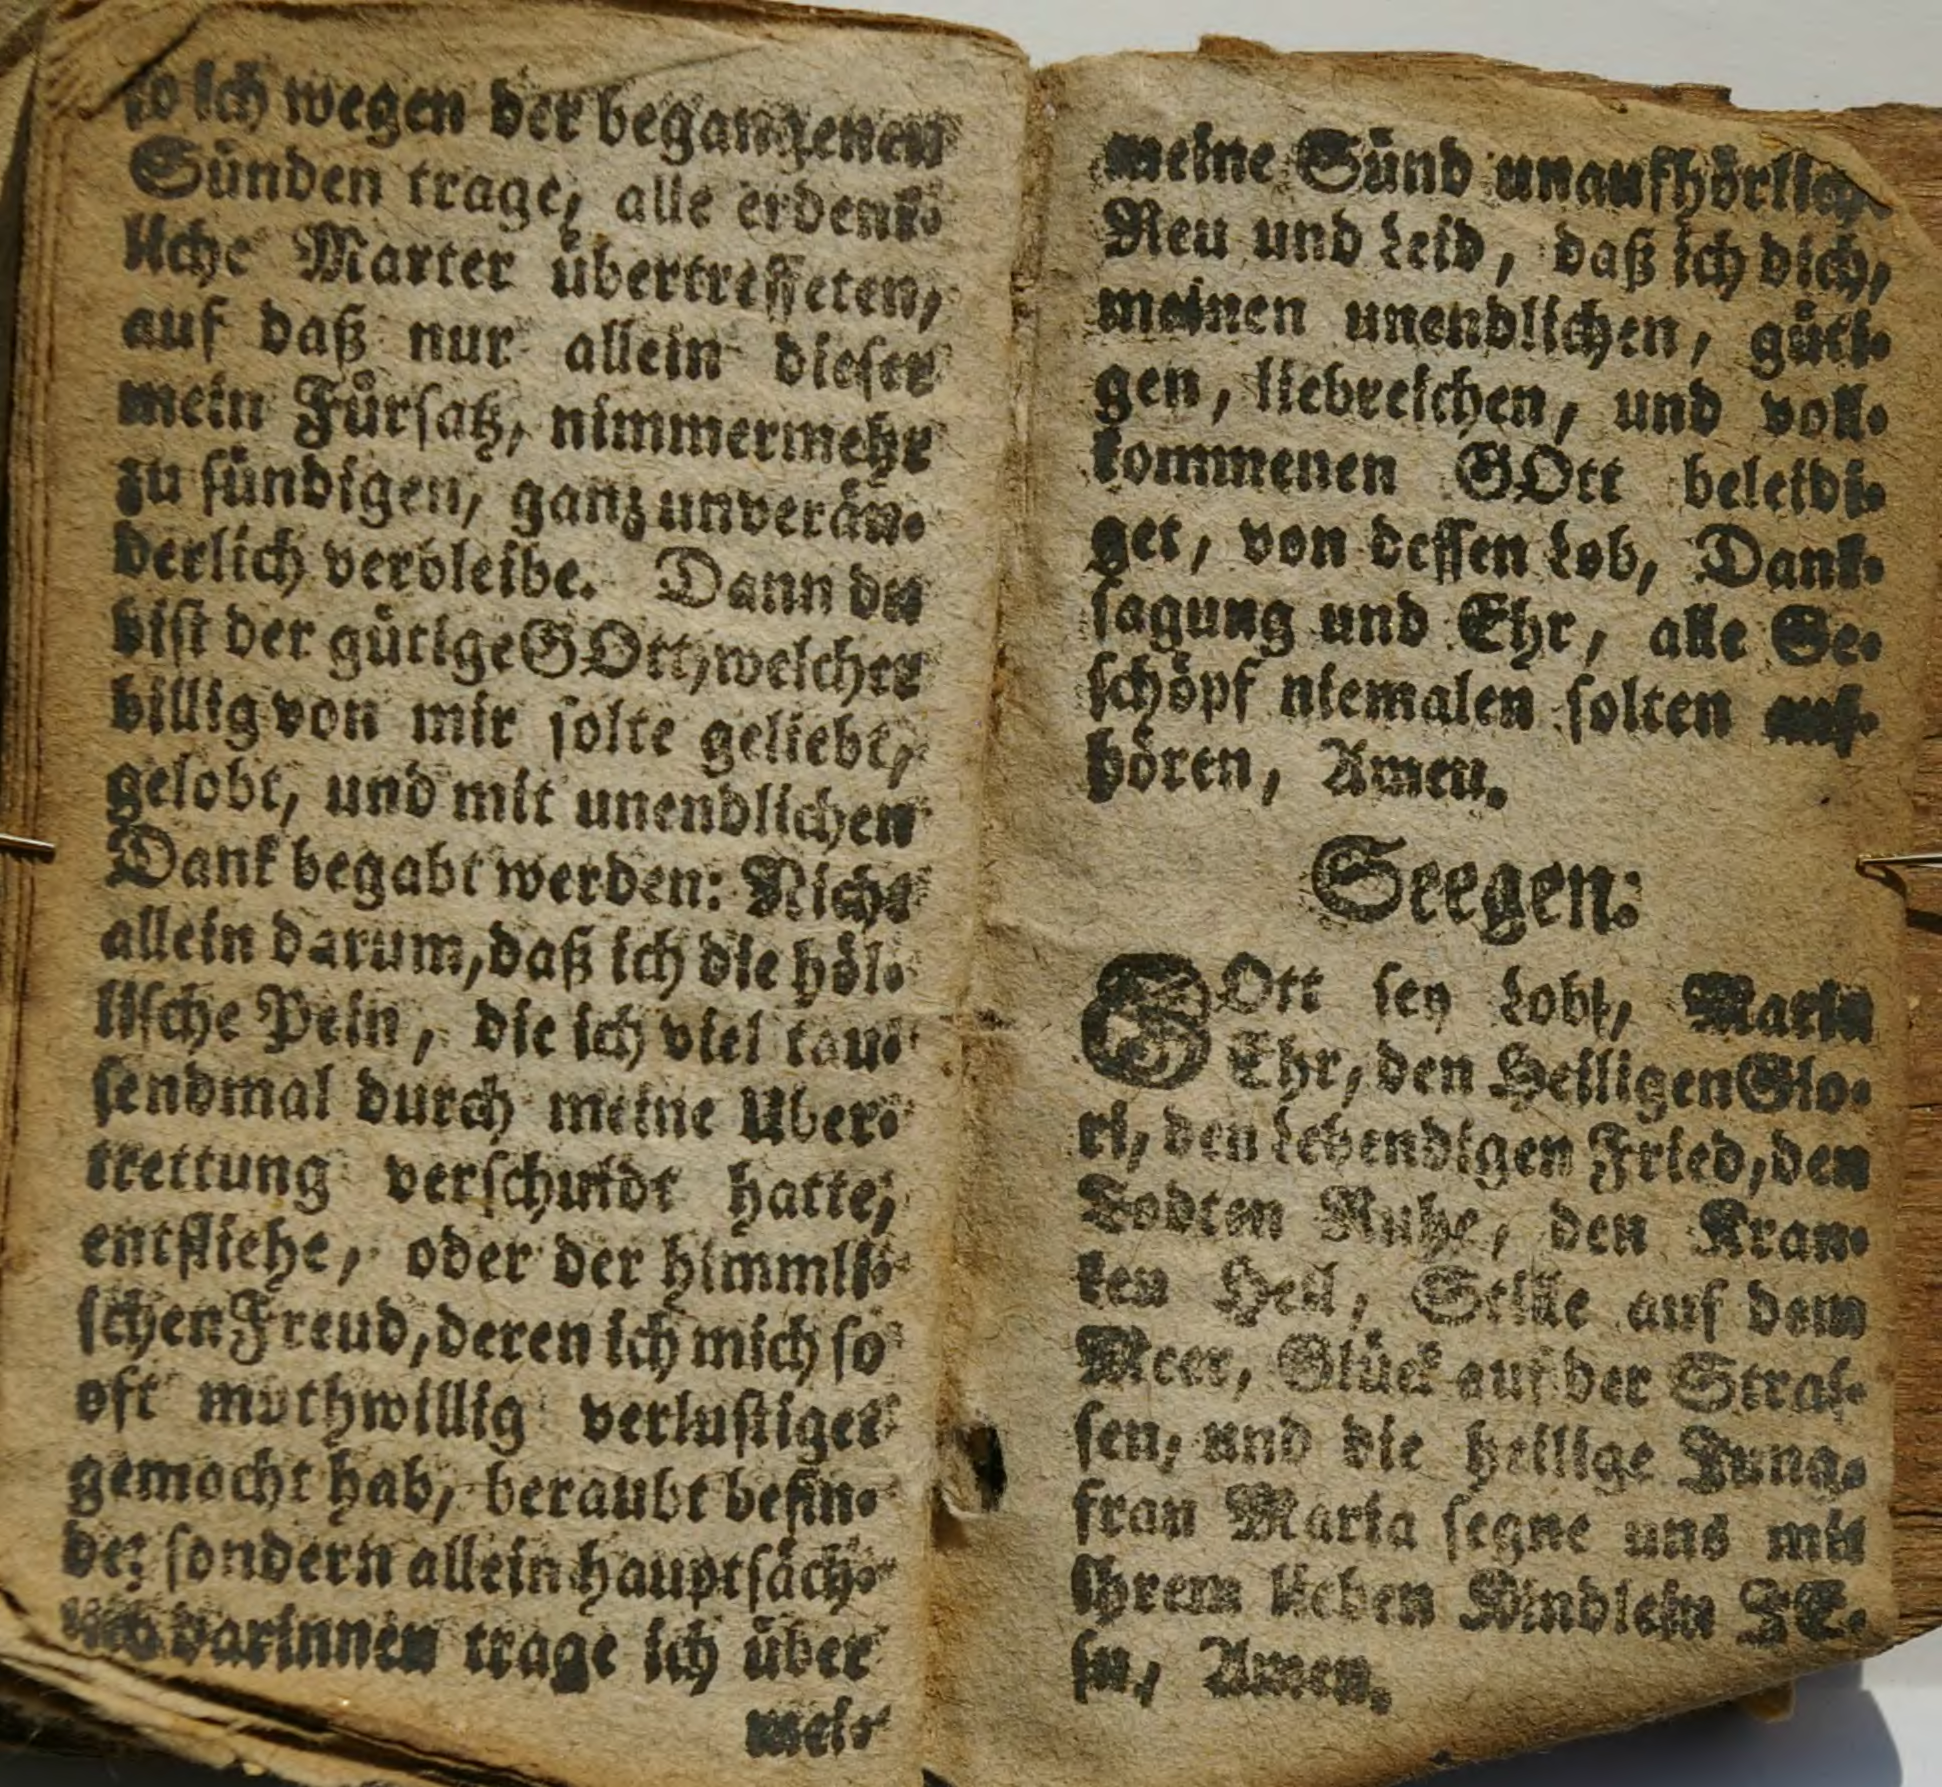 so ich wegen der begangenen
Sünden trage, alle erdenk-
liche Marter übertreffeten,
auf daß nur allein dieser
mein Fürsatz, nimmermehr
zu sündigen, ganz unverän-
derlich verbleibe. Dann du
bist der gütige GOtt, welcher
billig von mir solte geliebt,
gelobt, und mit unendlichen
Dank begabt werden: Nicht
allein darum, daß ich die höl-
lische Pein, die ich viel tau-
sendmal durch meine Uber-
trettung verschuldt hatte,
entfliehe, oder der himmli-
schen Freud, deren ich mich so
oft muthwillig verlustiget
gemacht hab, beraubt befin-
de; sondern allein hauptsäch-
lich darinnen trage ich über
mei-
meine Sünd unaufhörlich
Reu und Leid, daß ich dich,
meinen unendlichen, güti-
gen, liebreichen, und voll-
kommenen GOtt beleidi-
get, von dessen Lob, Dank-
sagung und Ehr, alle Ge-
schöpf niemalen solten auf-
hören, Amen.
Seegen:
GOtt sey Lobt, Maria
Ehr, den Heiligen Glo-
ri, den Lebendigen Fried, den
Todten Ruhe, den Kran-
ken Heil, Stille auf dem
Meer, Glück auf der Stras-
sen, und die heilige Jung-
frau Maria segne uns mit
ihrem lieben Kindlein JE-
su, Amen.